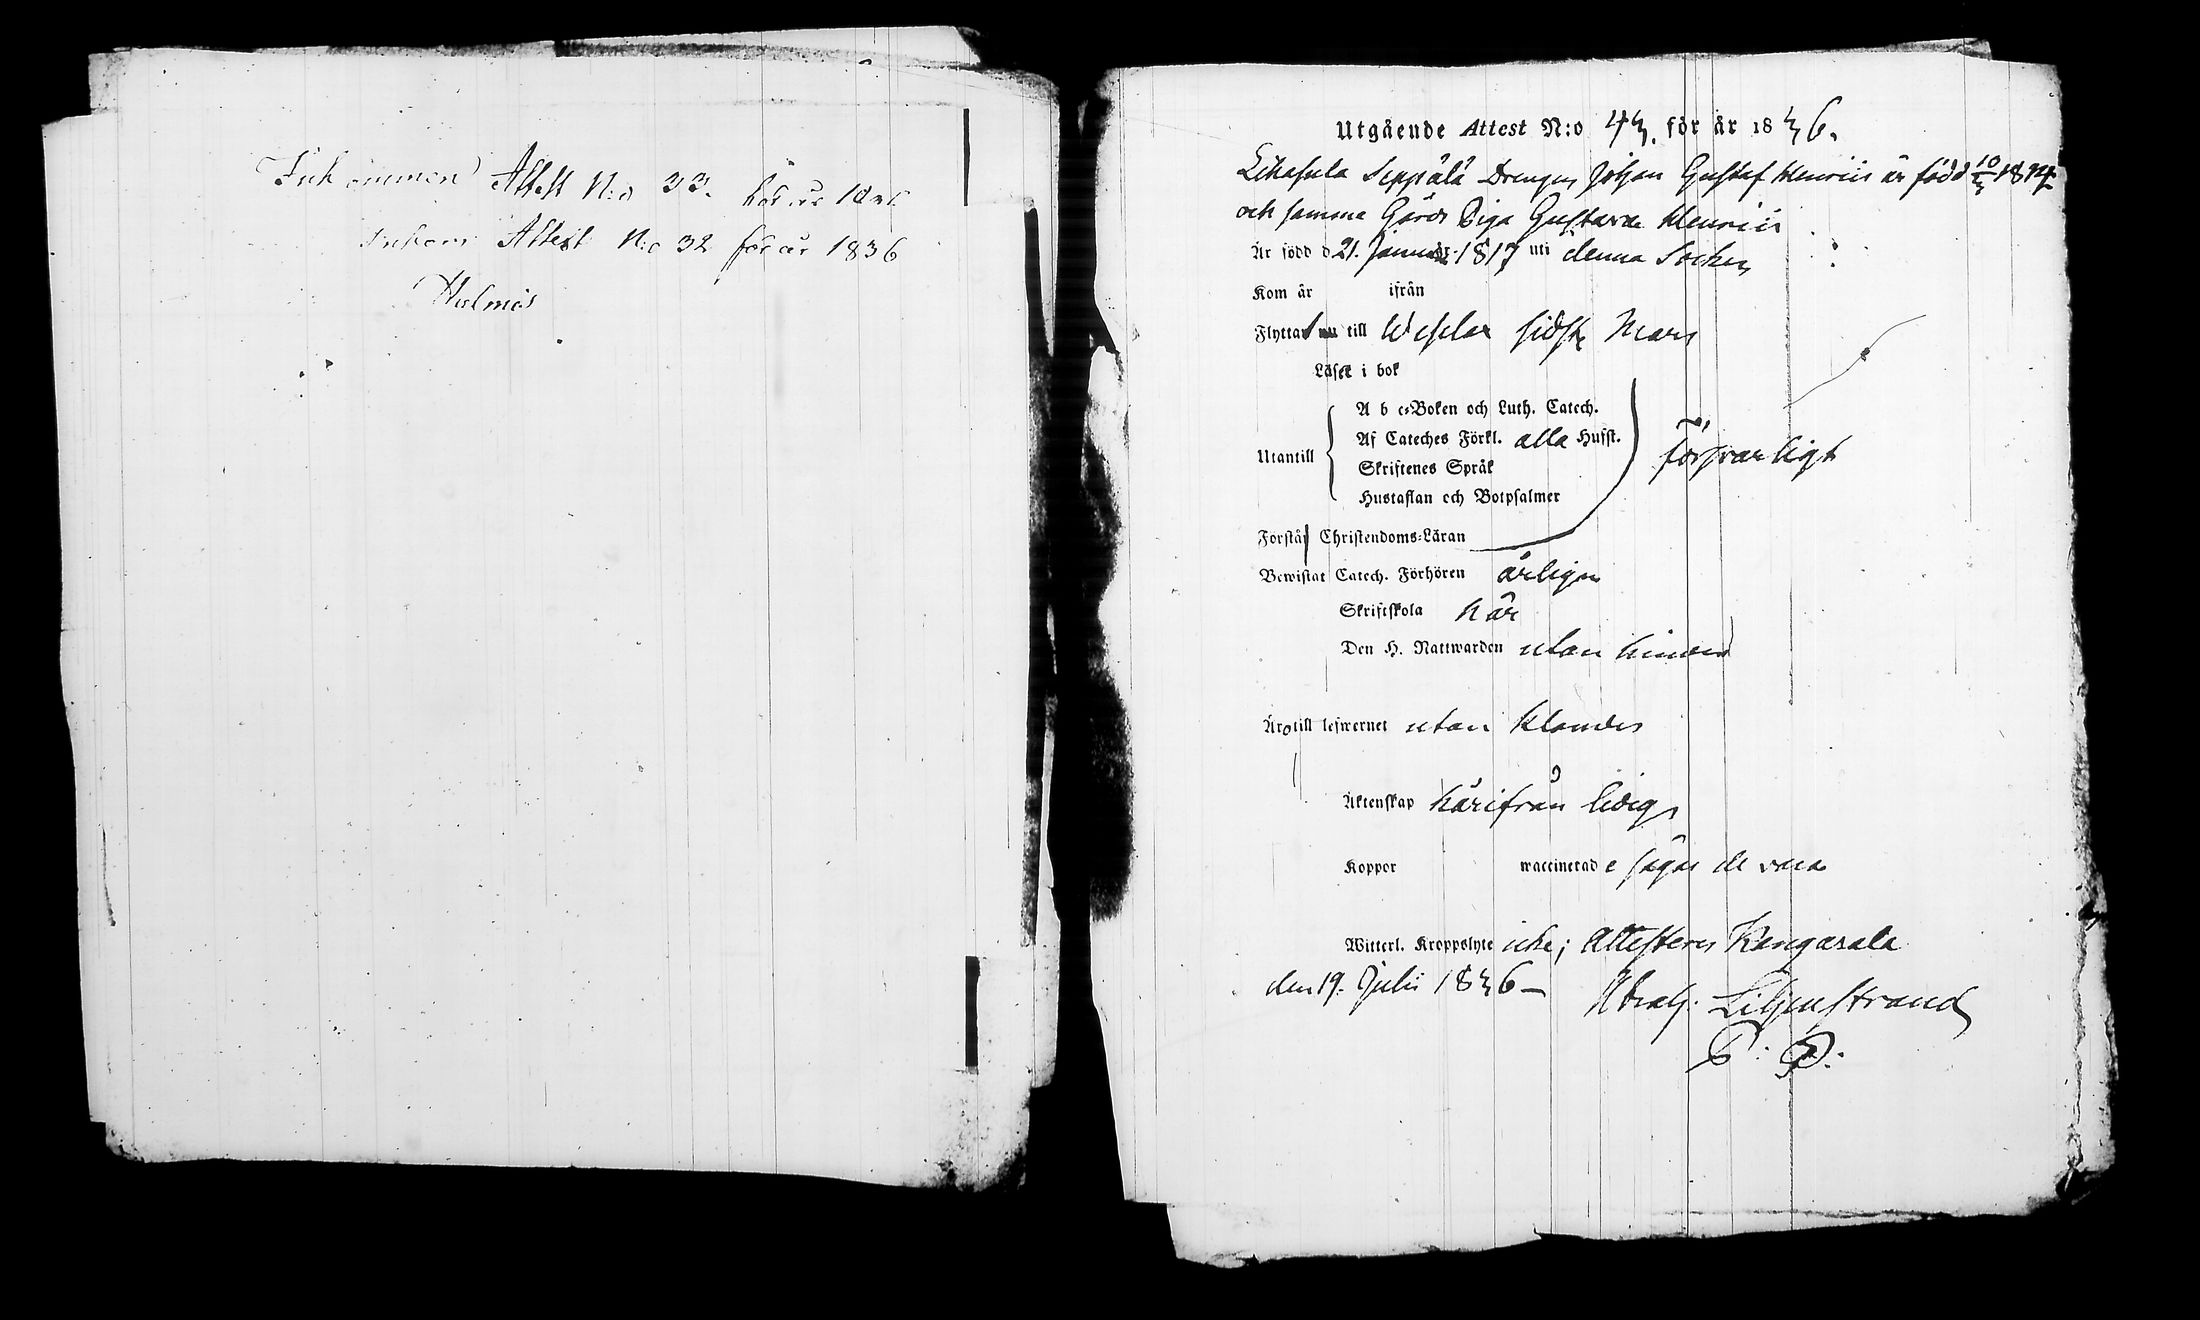 Inkommen Attest N:o 33. för år 1836
Inkom Attest N:o 32 för år 1836
Holmis
Utgående Attest N:o 43. för år 1836.
Likasula Seppälä Drengen Johan Gustaf Henriis är född 10/3 1814
och samma Gårds Piga Gustava Henriis
Är född d 21. Januar 1817 uti denna Socken
Kom år ifrån
Flyttat till Wesilax sidstn Mars
Läser i bok
A b c-Boken och Luth. Catech.
Af Cateches Förkl. alla Hufst.
Utantill försvarligt
Skriftenes Språk
Hustaflan och Botpsalmer
Förstår Christendoms-Läran
Bewistat Catech. Förhören årligen
Skriftskola här
Den H. Nattwarden utan hinder
Äro till lefwernet utan klander
Äktenskap härifrån lediga
Koppor waccinerade sägas de vara
Witterl. Kroppslyte icke; Attesterar Kangasala
den 19. Julii 1836 —
Abrah: Liljenstrand
P: P: